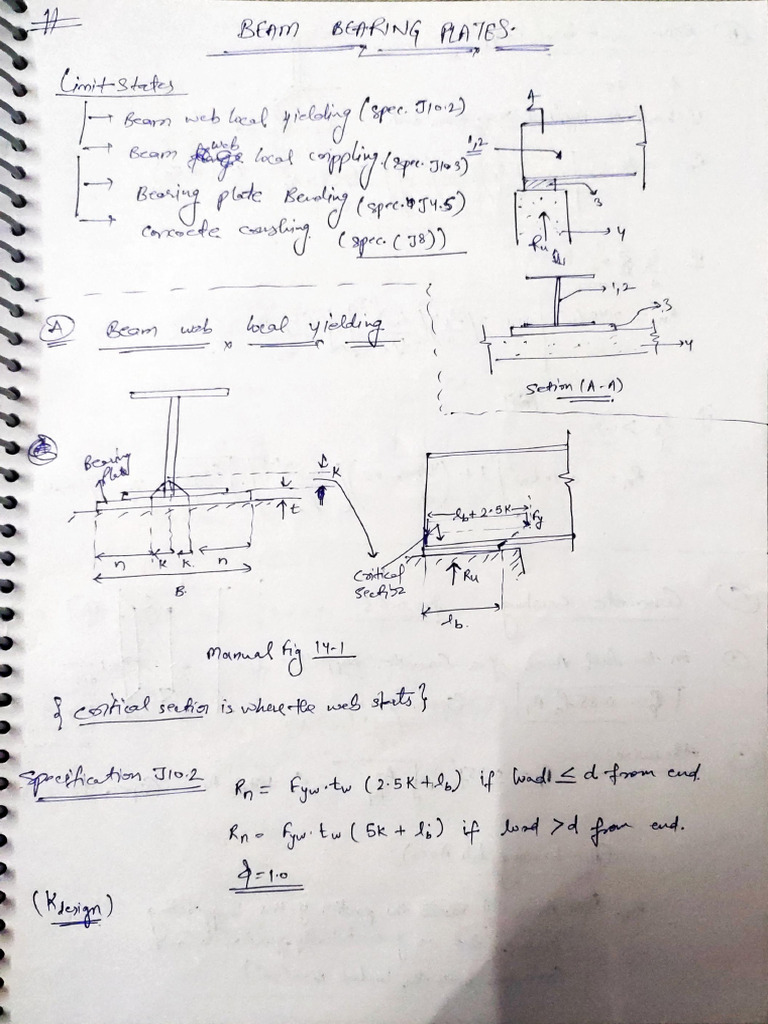 11
BEAM BEARING PLATES.
Limit States
→ Beam web local yielding (spec. J10.2)
→ Beam web local crippling (spec. J10.3)
→ Bearing plate Bending (spec. J4.5)
→ concrete crushing. (spec. (J8))
1,2
3
4
Ru
1,2
3
4
Section (A-A)
A Beam web local yielding
Bearing plate
K
t
n K K n
B.
lb + 2.5K
Fy
Critical section
Ru
lb.
Manual Fig 14-1
{ critical section is where the web starts }
Specification J10.2
Rn = Fyw.tw (2.5K+lb) if load ≤ d from end.
Rn = Fyw.tw (5K + lb) if load >d from end.
ϕ=1.0
(Kdesign)